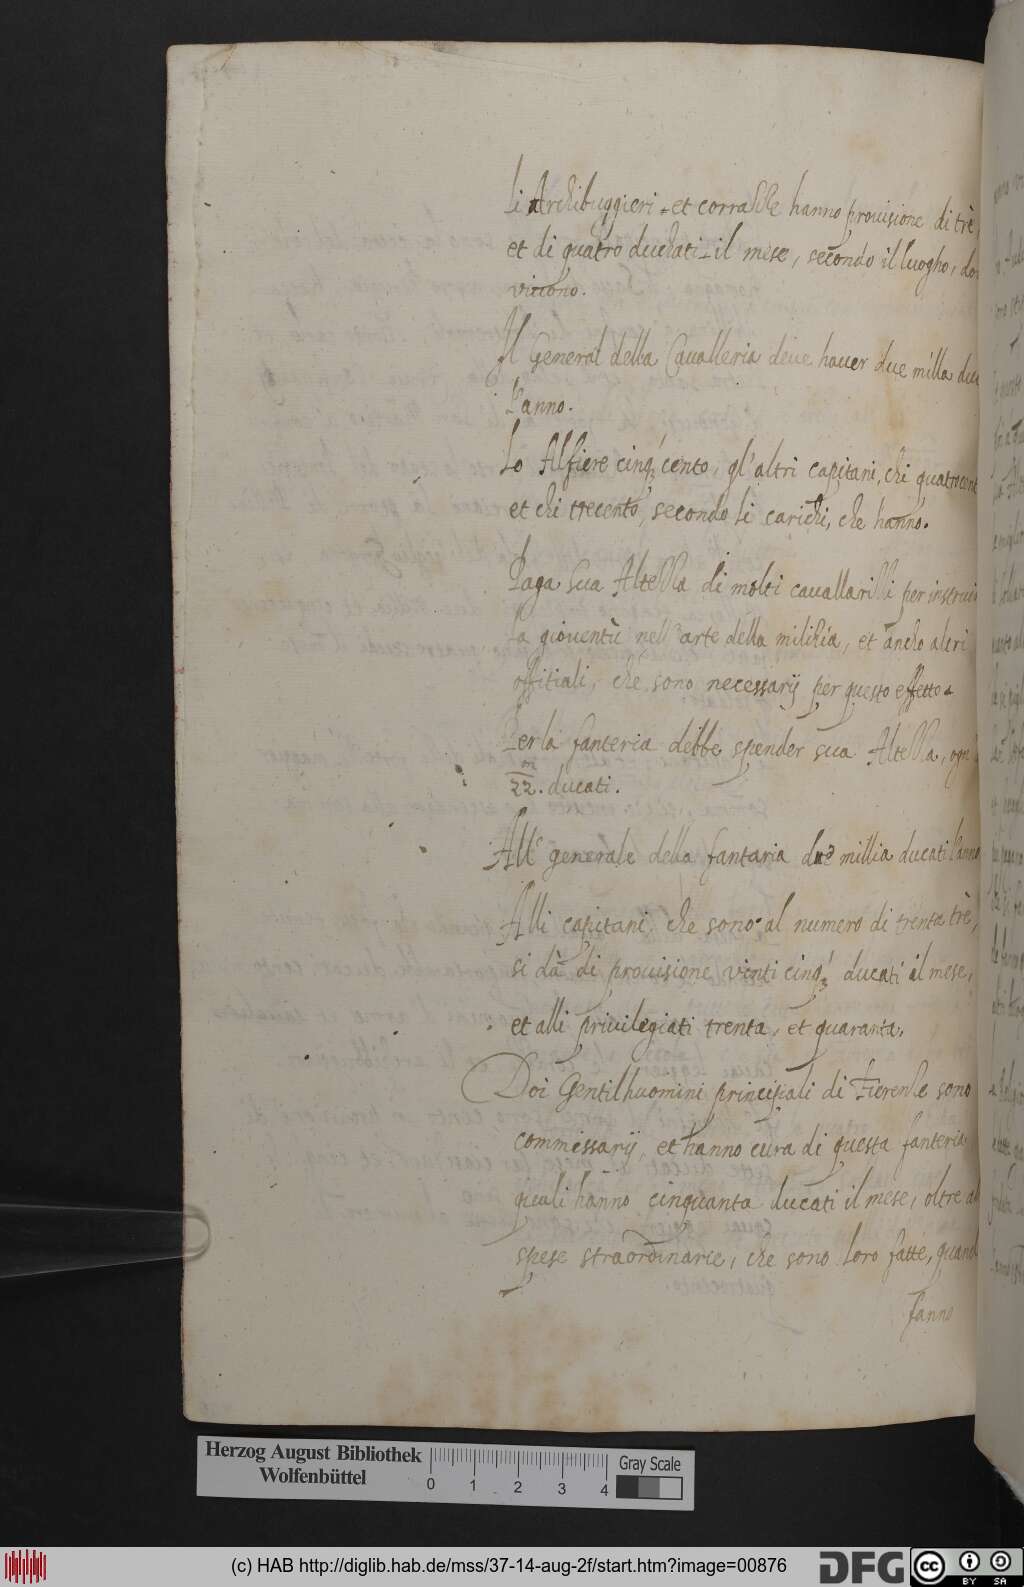 li Archibuggieri et corrazze hanno prouisione di trè,
et di quatro ducati il mese, secondo il luogho,
viuono.
Il General della Caualleria deue hauer due milla
l'anno.
Lo Alfiere cinq, cento, gl'altri capitani, chi
et chi trecento, secondo li carichi, che hanno.
Paga sua Altezza di molti cauallarizzi per
la giouentù nell'arte della militia, et ancho altri
offitiali, che sono necessarij per questo effetto
Per la fanteria debbe spender sua Altezza,
m
22. ducati.
All generale della fantaria due millia ducati l'anno
Alli capitani, che sono al numero di trenta trè,
si dà di prouisione venti cinq, ducati il mese,
et alli priuilegiati trenta, et quaranta.
Doi Gentilhuomini principali di Fierenze sono
commessarij, et hanno cura di questa fanteria
quali hanno cinquanta ducati il mese, oltre
spese straordinarie, che sono loro fatte,
fanno
Herzog August Bibliothek
Wolfenbüttel
0 1 2 3 4
Gray Scale
(c) HAB http://diglib.hab.de/mss/37-14-aug-2f/start.htm?image=00876
DFG
cc BY SA